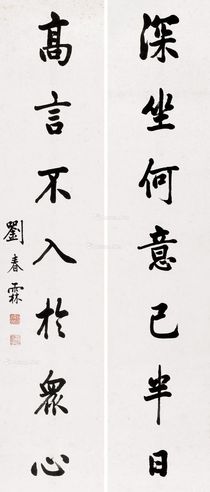 深坐何意已半日
高言不入於眾心
劉春霖